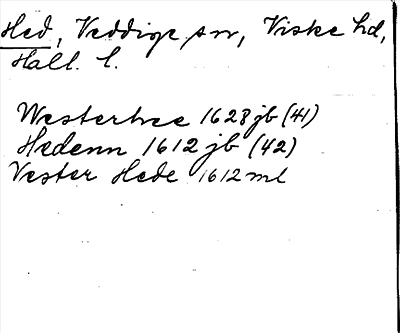 Hed, Veddige sn, Viske hd,
Hall. l.
Westerhee 1628 jb (41)
Hedenn 1612 jb (42)
Vester Hede 1612 ml